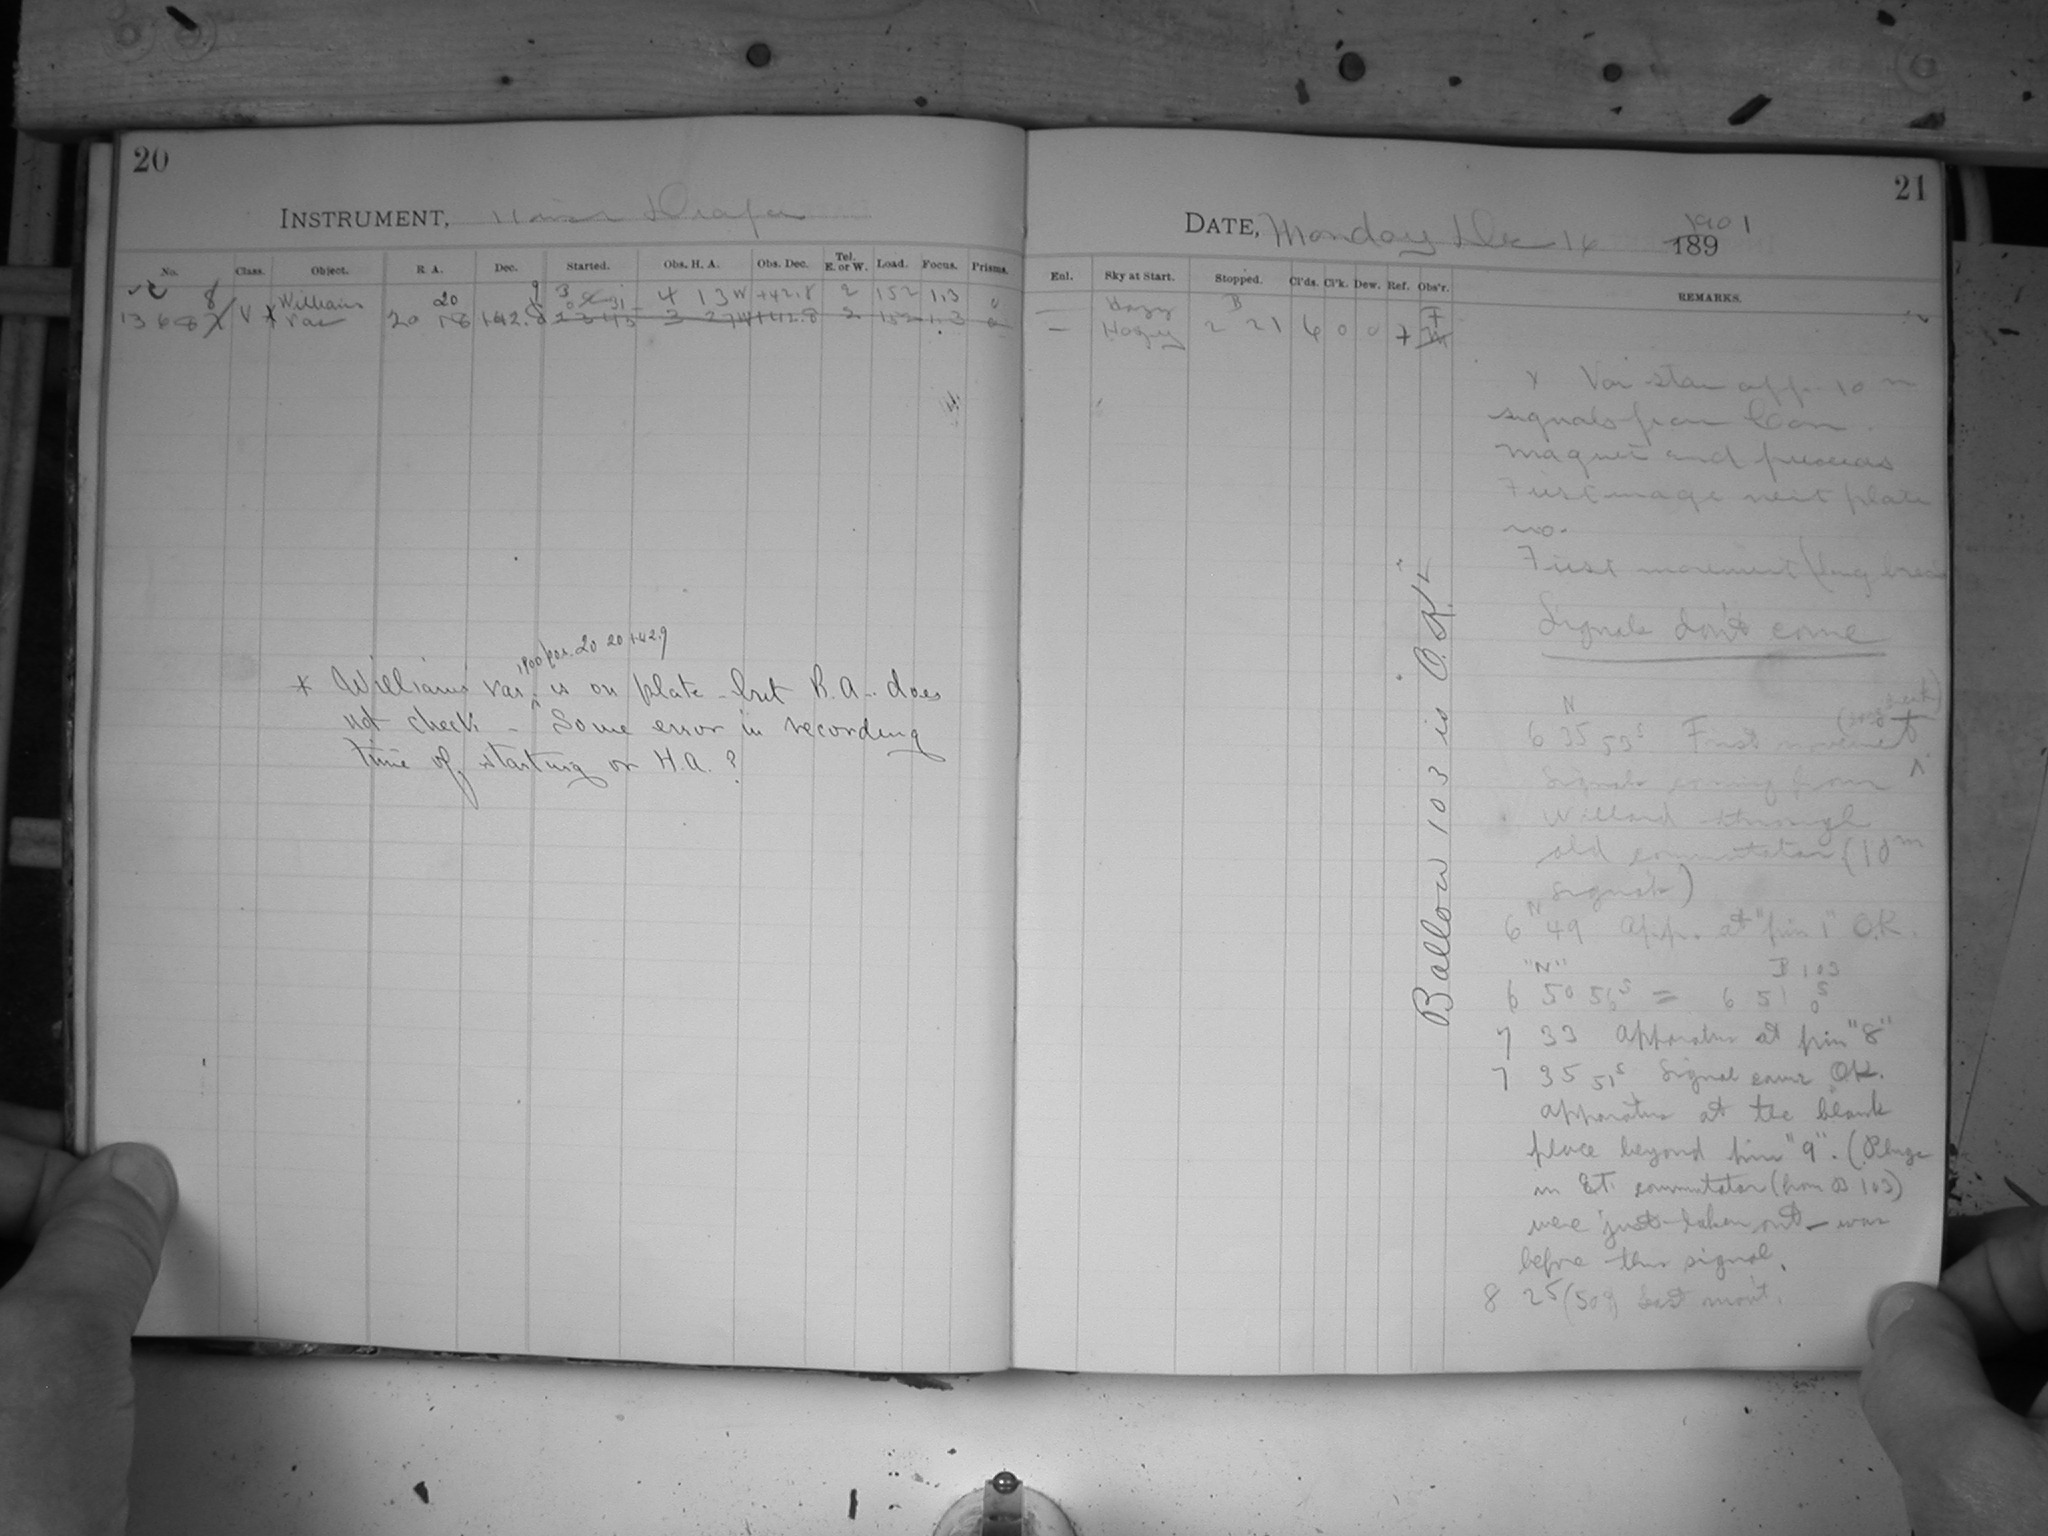 20
INSTRUMENT, Draper
No. Class. Object. R A. Dec. Started. Obs. H. A. Obs. Dec. Tel. E. or W. Load. Focus. Prisms.
8 Williams 20 9 3 31 4 13 W +42.8 2 152 1.3 0
13687 V x Var 20 18 +42.8 3 27 W +42.8 2 152 1.3 0
1900 pos. 20 20 +42.9
* Williams var. ^ is on plate - but R.A. does
not check - Some error in recording
time of starting or H.A. ?
21
DATE, Monday Dec 16 1901
189
Enl. Sky at Start. Stopped. Cl'ds. Cl'k. Dew. Ref. Obs'r. REMARKS.
— Hazy B
— Hazy 2 21 6 0 0 7
x Var star app. 10 m
signals from Com.
magnet and
First image next plate
no.
First movement (long break
Signals don't come
N
6 35 53s First
signals coming from
Willard through
old commutator (10m
signals)
N
6 49 App. at "pin 1" O.K.
"N" B 103
6 50 56s = 6 51 0s
7 33 Apparatus at pin "8"
7 35 51s Signal came O.K.
apparatus at the blank
place beyond pin "9". (Plugs
in ET. commutator (from B 103)
were just taken out - was
before this signal.
8 25 (50s) last mov't.
Ballou 103 is "O.K."